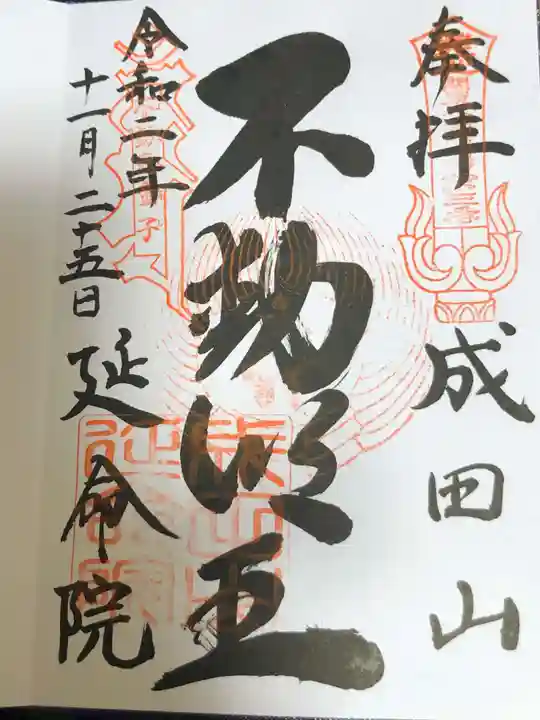 奉拝
成田山
不動明王
令和二年
十一月二十五日
延命院